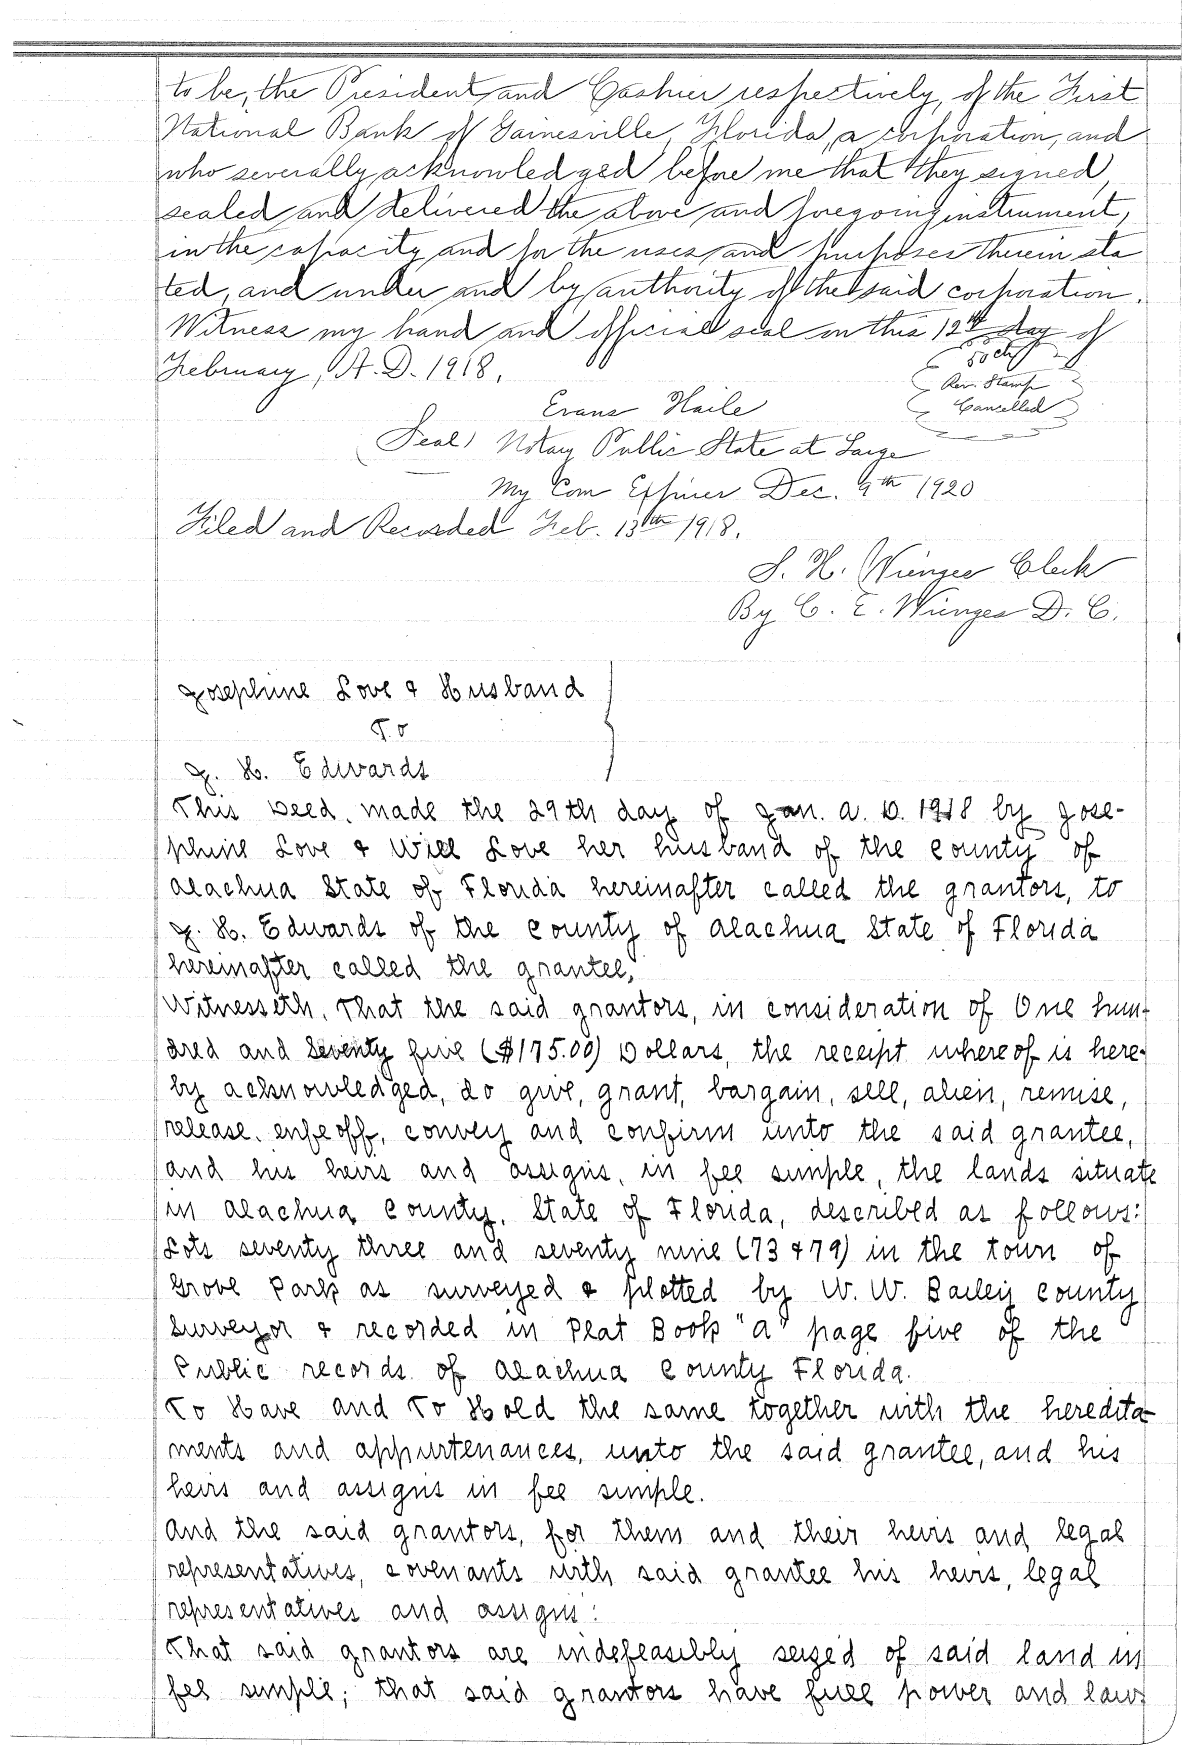 to be, the President and Cashier respectively, of the First
National Bank of Gainesville, Florida, a corporation, and
who severally acknowledged before me that they signed,
sealed and delivered the above and foregoing instrument,
in the capacity and for the uses and purposes therein sta
ted, and under and by authority of the said corporation.
Witness my hand and official seal on this 12th day of
February, A.D. 1918.
50 cts
Rev. Stamp
Cancelled
Evans Haile
(Seal) Notary Public State at Large
My Com Expires Dec. 9th 1920
Filed and Recorded Feb. 13th 1918.
S. H. Wienges Clerk
By C. E. Wienges D. C.
Josephine Love & Husband
To
J. H. Edwards
This Deed, made the 29th day of Jan. A. D. 1918 by Jose-
phine Love & Will Love her husband of the County of
Alachua State of Florida hereinafter called the grantors, to
J. H. Edwards of the County of Alachua State of Florida
hereinafter called the grantee,
Witnesseth, That the said grantors, in consideration of One hun-
dred and Seventy five ($175.00) Dollars, the receipt whereof is here-
by acknowledged, do give, grant, bargain, sell, alien, remise,
release, enfeoff, convey and confirm unto the said grantee,
and his heirs and assigns, in fee simple, the lands situate
in Alachua County, State of Florida, described as follows:
Lots seventy three and seventy nine (73 & 79) in the town of
Grove Park as surveyed & plotted by W. W. Bailey County
Surveyor & recorded in Plat Book "A" page five of the
Public records of Alachua County Florida.
To Have and To Hold the same together with the heredita-
ments and appurtenances, unto the said grantee, and his
heirs and assigns in fee simple.
And the said grantors, for them and their heirs and legal
representatives, covenants with said grantee his heirs, legal
representatives and assigns:
That said grantors are indefeasibly seized of said land in
fee simple; that said grantors have full power and law-